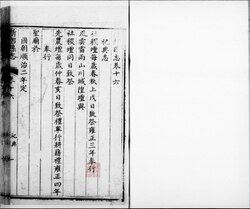 志卷十六
祀典志
社稷壇每歲春秋上戊日致祭雍正三年奉行
風雲雷雨山川城隍壇與
社稷壇同日致祭
先農壇每歲仲春亥日致祭禮畢行耕耤禮雍正四年
奉行
聖廟於
國朝順治二年定
縣志
祀典